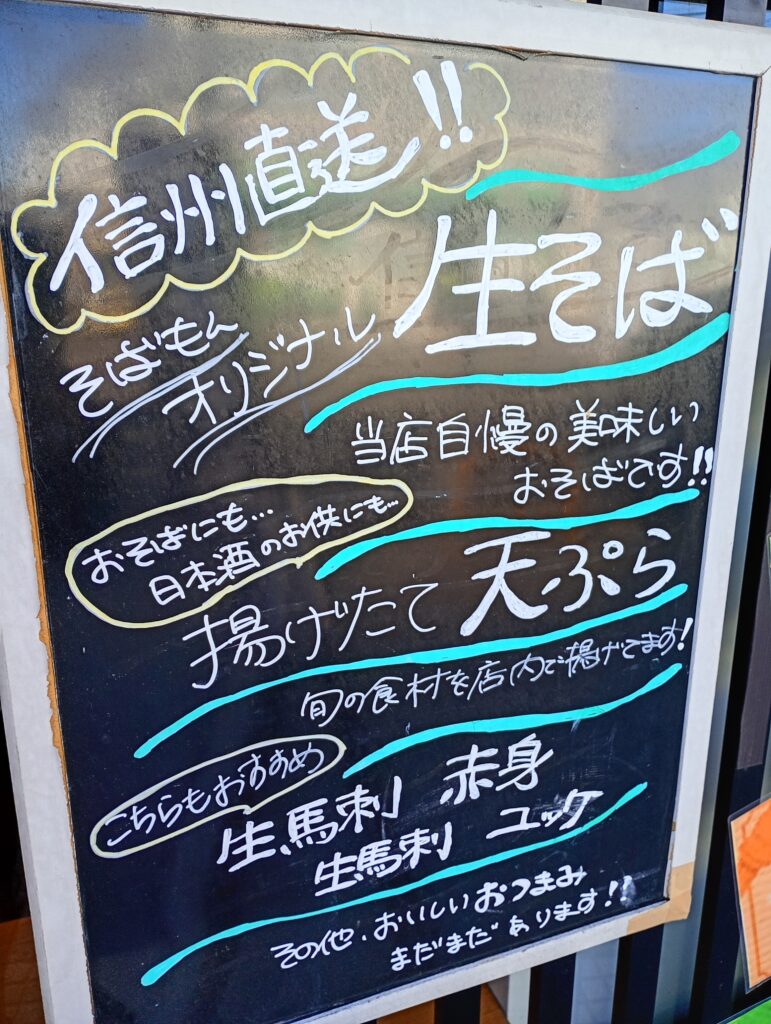 信州直送!!
そばもん
オリジナル
生そば
当店自慢の美味しい
おそばです!!
おそばにも…
日本酒のお供にも…
揚げたて 天ぷら
旬の食材を店内で揚げてます!
こちらもおすすめ
生馬刺 赤身
生馬刺 ユッケ
その他、おいしいおつまみ
まだまだあります!!